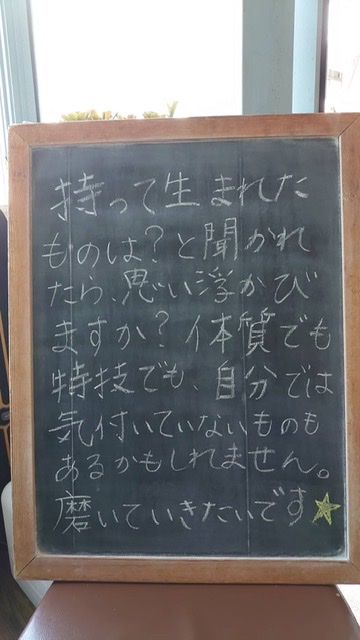 持って生まれた
ものは？と聞かれ
たら、思い浮かび
ますか？体質でも
特技でも、自分では
気付いていないものも
あるかもしれません。
磨いていきたいです★